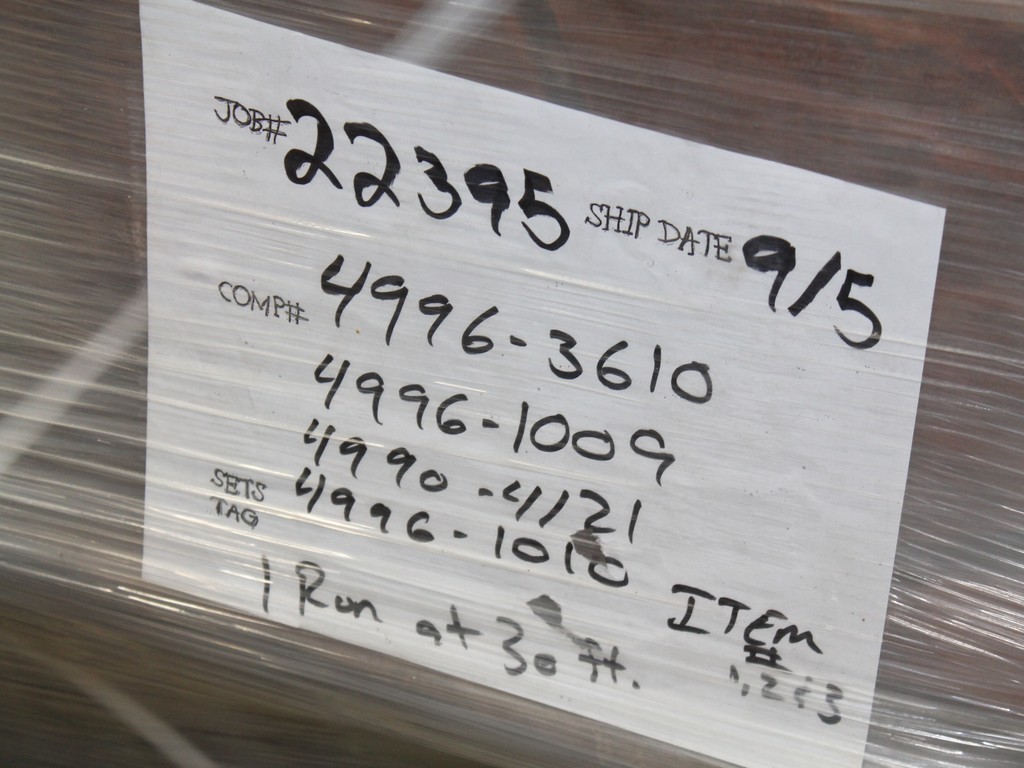 JOB# 22395 SHIP DATE 9/5
COMP# 4996-3610
4996-1009
4990-4121
SETS 4996-1010
TAG
1 Run at 30 ft.
ITEM
#
1,2+3